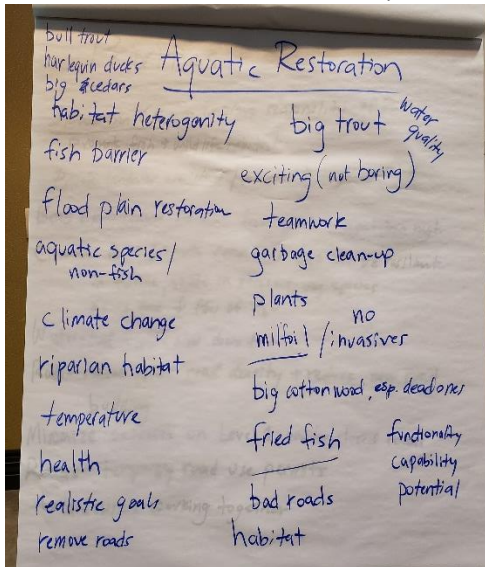 Aquatic Restoration
bull trout
harlequin ducks
big cedars
habitat heterogenity
fish barrier
flood plain restoration
aquatic species/
non-fish
climate change
riparian habitat
temperature
health
realistic goals
remove roads
big trout
water
quality
exciting (not boring)
teamwork
garbage clean-up
plants
no
milfoil / invasives
big cottonwood, esp. dead ones
fried fish
bad roads
habitat
functionality
capability
potential